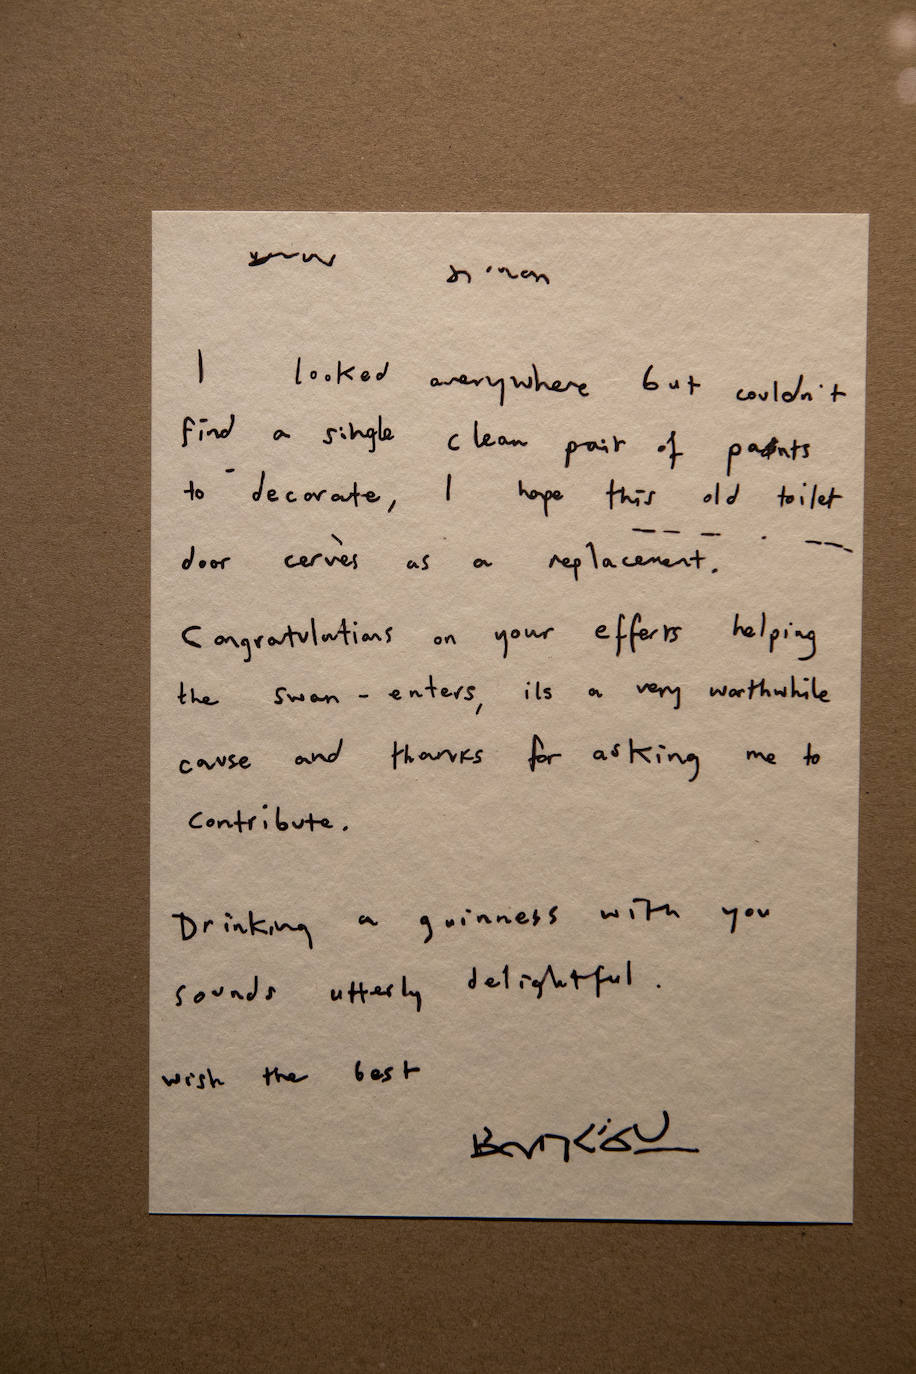 simon
I looked averywhere but couldn't
find a single clean pair of pants
to decorate, I hope this old toilet
door cerves as a replacement.
Congratulations on your efferts helping
the swan - enters, its a very worthwhile
cause and thanks for asking me to
contribute.
Drinking a guinness with you
sounds utterly delightful.
wish the best